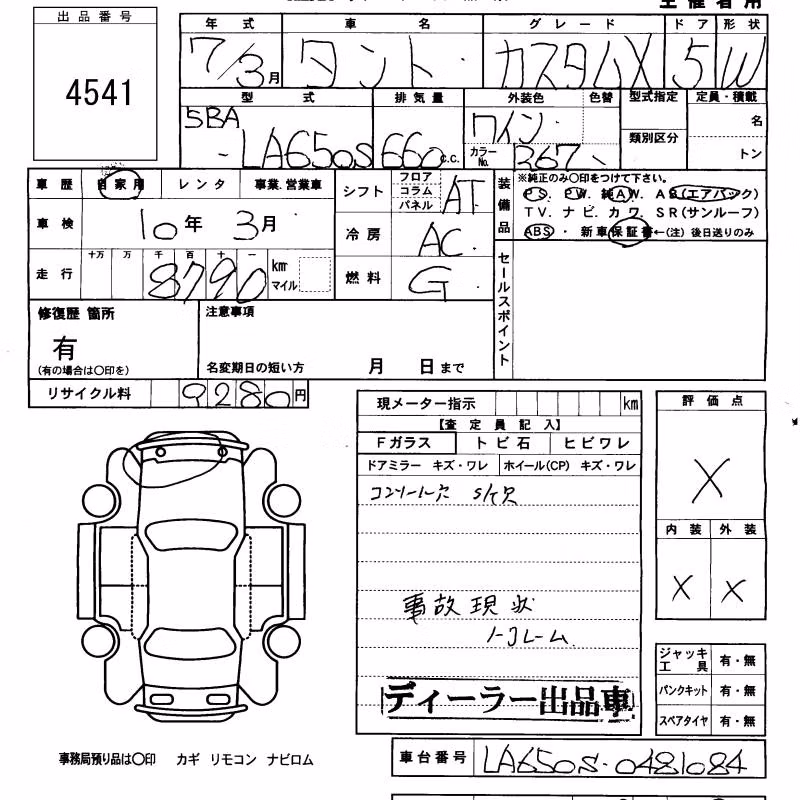 出品番号
4541
年式 車名 グレード ドア 形状
7/3月 タント カスタムX 5 W
型式 排気量 外装色 色替 型式指定 定員・積載
5BA
-LA650S 660 C.C. ワイン 名
カラーNo. 367 類別区分 トン
車歴 自家用 レンタ 事業.営業車
シフト フロア コラム パネル AT
装備品 ※純正のみ〇印をつけて下さい。
PS. PW. 純AW. AB(エアバック)
TV. ナビ. カワ. SR(サンルーフ)
ABS・ 新車保証書←(注) 後日送りのみ
車検 10年 3月
冷房 AC
走行 十万 万 千 百 十 一
8790 km マイル
燃料 G
セールスポイント
修復歴 箇所 注意事項
有
(有の場合は〇印を)
名変期日の短い方 月 日まで
リサイクル料 9280円
現メーター指示 km
【査定員記入】
Fガラス トビ石 ヒビワレ
ドアミラー キズ・ワレ ホイール(CP) キズ・ワレ
コンソール穴 S/穴
事故現状
ノークレーム.
ディーラー出品車
評価点
X
内装 外装
X X
ジャッキ工具 有・無
パンクキット 有・無
スペアタイヤ 有・無
事務局預り品は〇印 カギ リモコン ナビロム
車台番号 LA650S-0481084